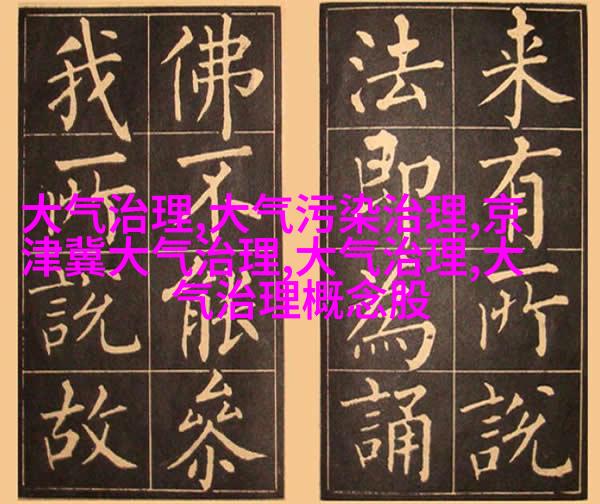 来有所説
法即為誦
佛不能叅
我所説故
大气治理,大气污染治理,京
津冀大气治理,大气治理,大
气治理概念股